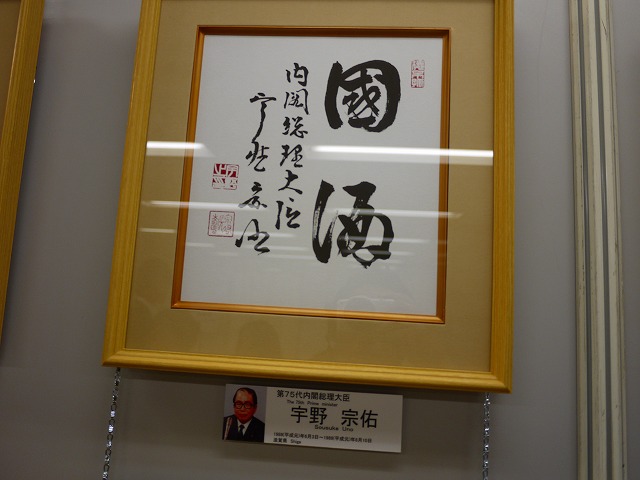 國酒
内閣総理大臣
宇野宗佑
第75代内閣総理大臣
The 75th Prime minister
宇野 宗佑
Sousuke Uno
1989(平成元)年6月3日〜1989(平成元)年8月10日
滋賀県 Shiga